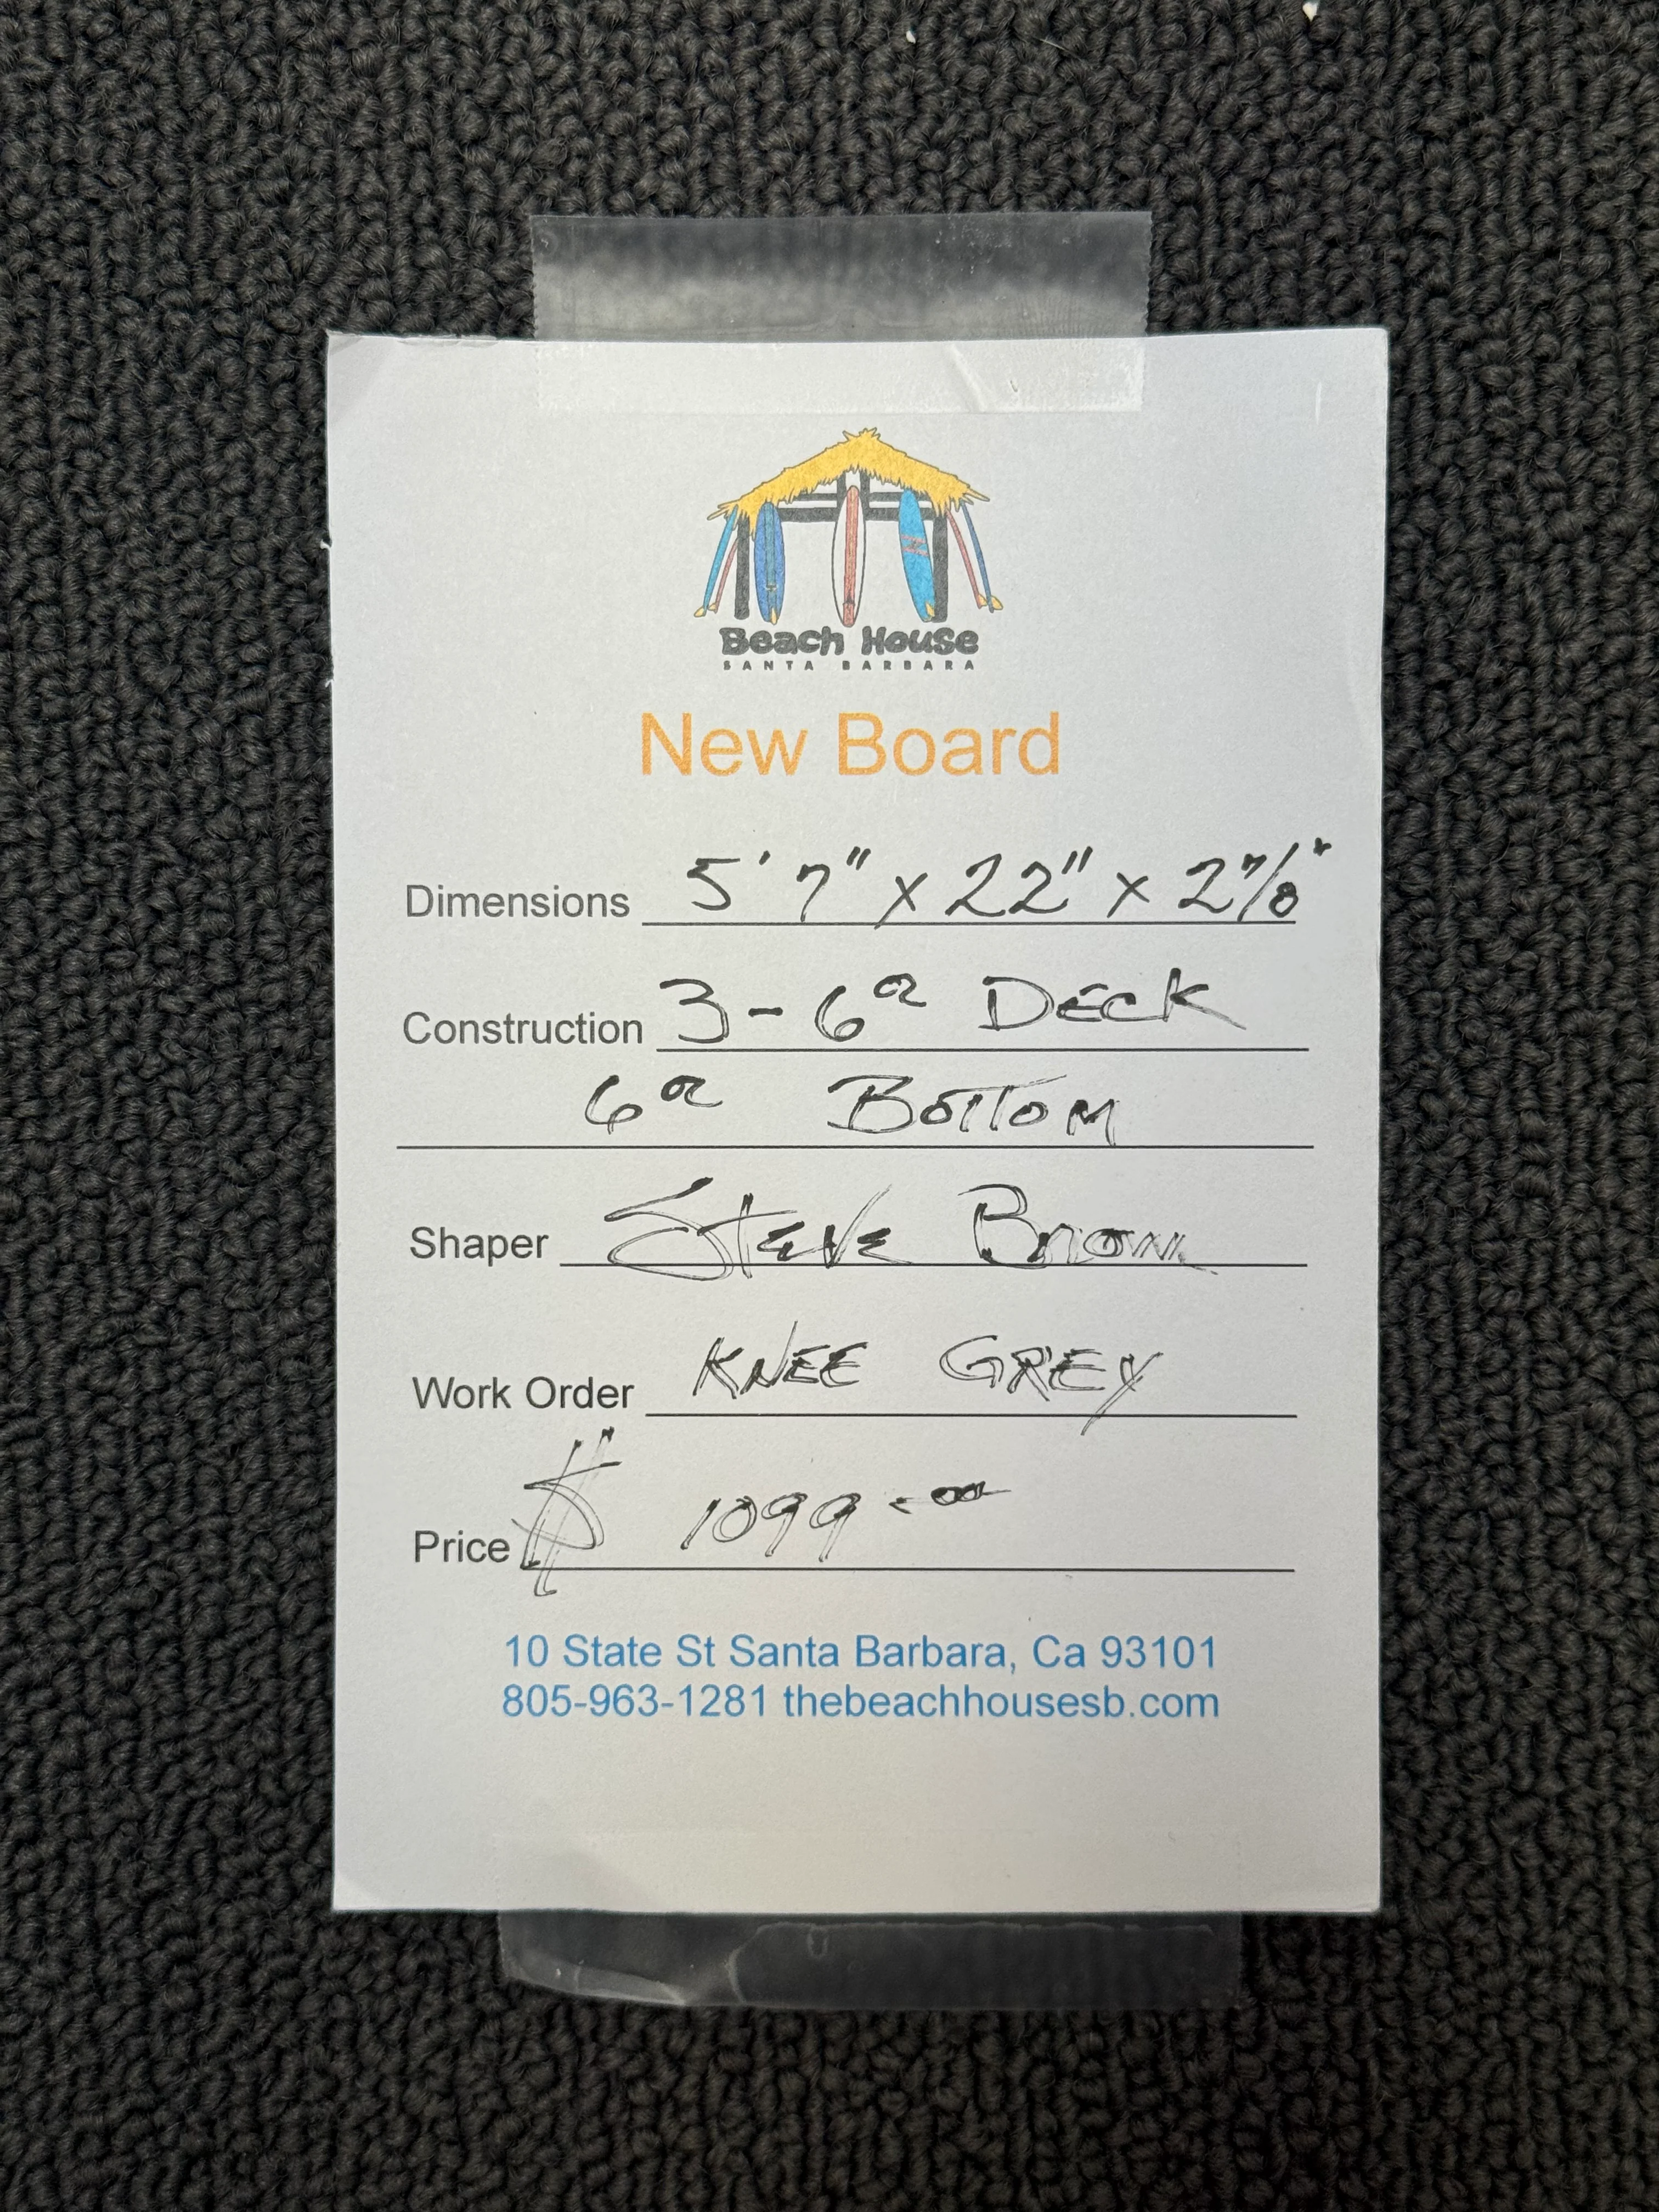 Beach House
SANTA BARBARA
New Board
Dimensions 5' 7" x 22" x 2 7/8"
Construction 3-6oz DECK
6oz BOTTOM
Shaper Steve Brown
Work Order KNEE GREY
Price $ 1099.00
10 State St Santa Barbara, Ca 93101
805-963-1281 thebeachhousesb.com